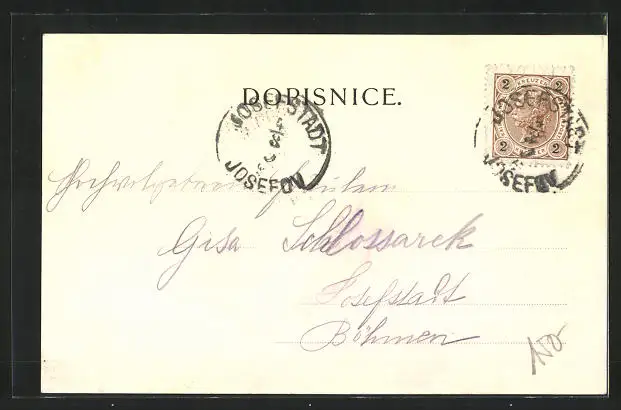 DOPISNICE.
JOSEFSTADT
JOSEFOV
2 KREUZER 2
2 2
JOSEFSTADT
JOSEFOV
Hochwohlgeboren Fräulein
Gisa Schlossarek
Josefstadt
Böhmen